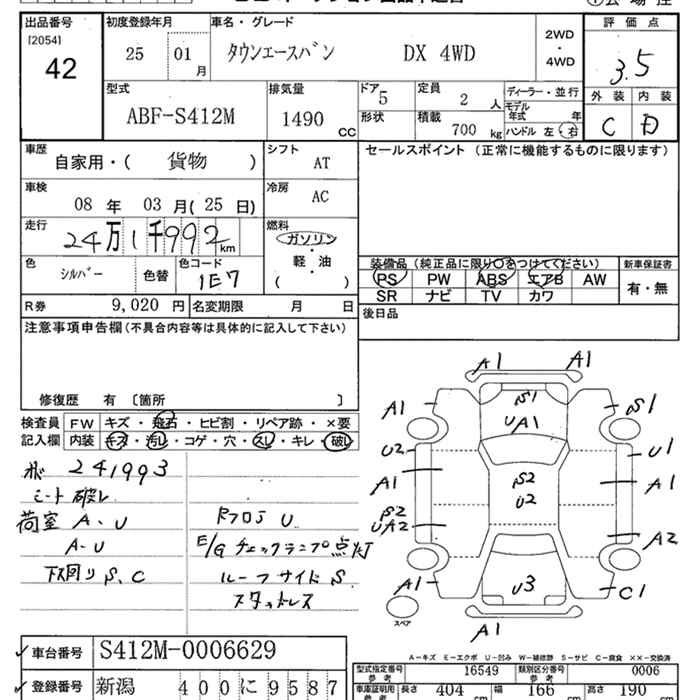 出品番号 初度登録年月 車名・グレード 評価点
[2054]
42 25 01月 タウンエースバン DX 4WD 2WD・4WD 3.5
型式 排気量 ドア 定員 ディーラー・並行 外装 内装
ABF-S412M 1490 CC 5 2人 モデル年式 年 C D
形状 積載 700kg ハンドル 左・右
車歴 シフト セールスポイント (正常に機能するものに限ります)
自家用・( 貨物 ) AT
車検 冷房
08年 03月(25日) AC
走行 燃料
24万1千992km ガソリン
軽・油
( )
色 色替 色コード
シルバー 1E7
装備品(純正品に限り○をつけてください) 新車保証書
PS PW ABS エアB AW 有・無
SR ナビ TV カワ
R券 9,020円 名変期限 月 日
後日品
注意事項申告欄(不具合内容等は具体的に記入して下さい)
修復歴 有 〔箇所 〕
検査員 FW キズ・飛石・ヒビ割・リペア跡・×要
記入欄 内装 キズ・汚レ・コゲ・穴・スレ・キレ・破レ
241993
シート破レ
荷室 A、U
A-U
下回りS、C
RフロアU
E/Gチェックランプ点灯
ルーフサイドS
スタッドレス
A1 A1
A1 S1 S1
UA1
U2 U1
A1 S2 A1
U2
S2
UA2 A2
A1 U3 C1
スペア
A1
A-キズ E-エクボ U-凹み W-補修跡 S-サビ C-腐食 ××-交換済
車台番号 S412M-0006629
型式指定番号 参考 16549 類別区分番号 参考 0006
登録番号 新潟 400 に 9587
車庫証明用 参考 長さ 404 cm 幅 166 cm 高さ 190 cm